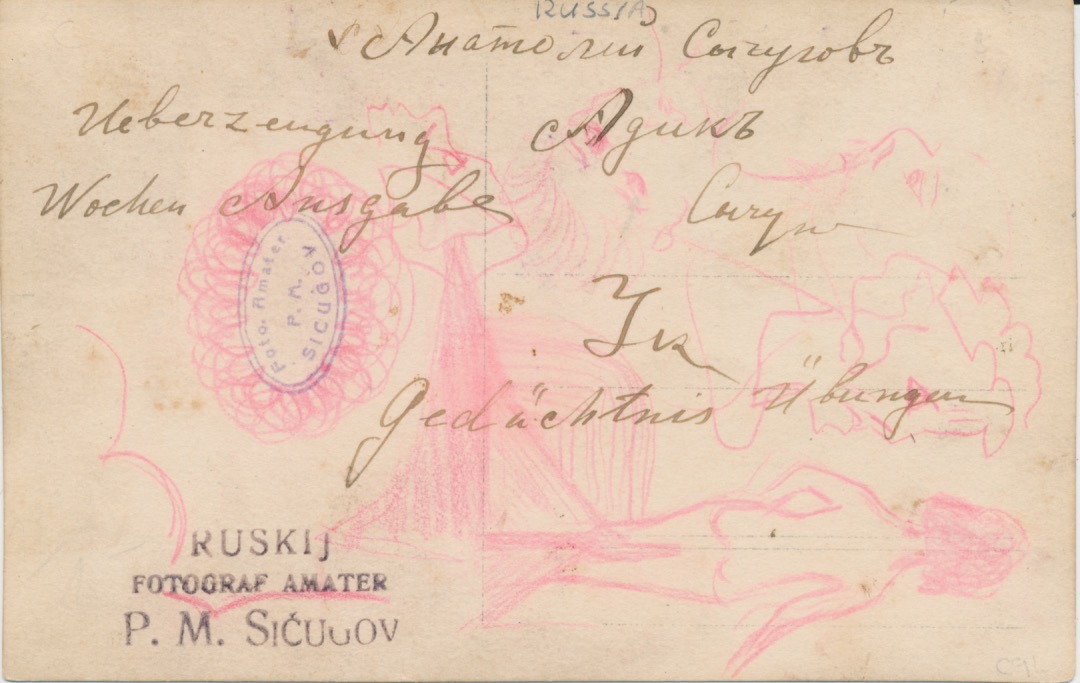 RUSSIA
Анатолий Сычуговъ
Ueberzeugung
Адикъ
Wochen Ausgabe
Сычуг
Foto. Amater
P. M.
SIČUGOV
Gedächtnis Übungen
RUSKIJ
FOTOGRAF AMATER
P. M. SIČUGOV